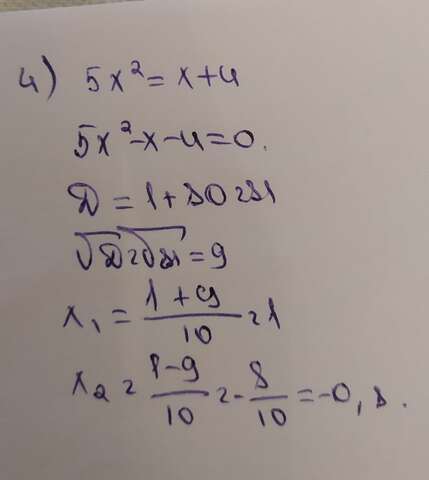 4) 5x² = x + 4
5x² - x - 4 = 0.
D = 1 + 80 = 81
√D = √81 = 9
x₁ = (1 + 9)/10 = 1
x₂ = (1 - 9)/10 = -8/10 = -0,8.